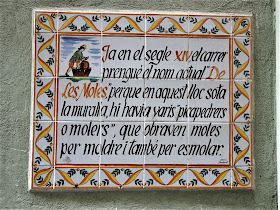 Ja en el segle XIV el carrer
prengué el nom actual "De
Les Moles", perque en aquest lloc sota
la muralla, hi havia varis "picapedrers
o molers", que obraven moles
per moldre i també per esmolar.